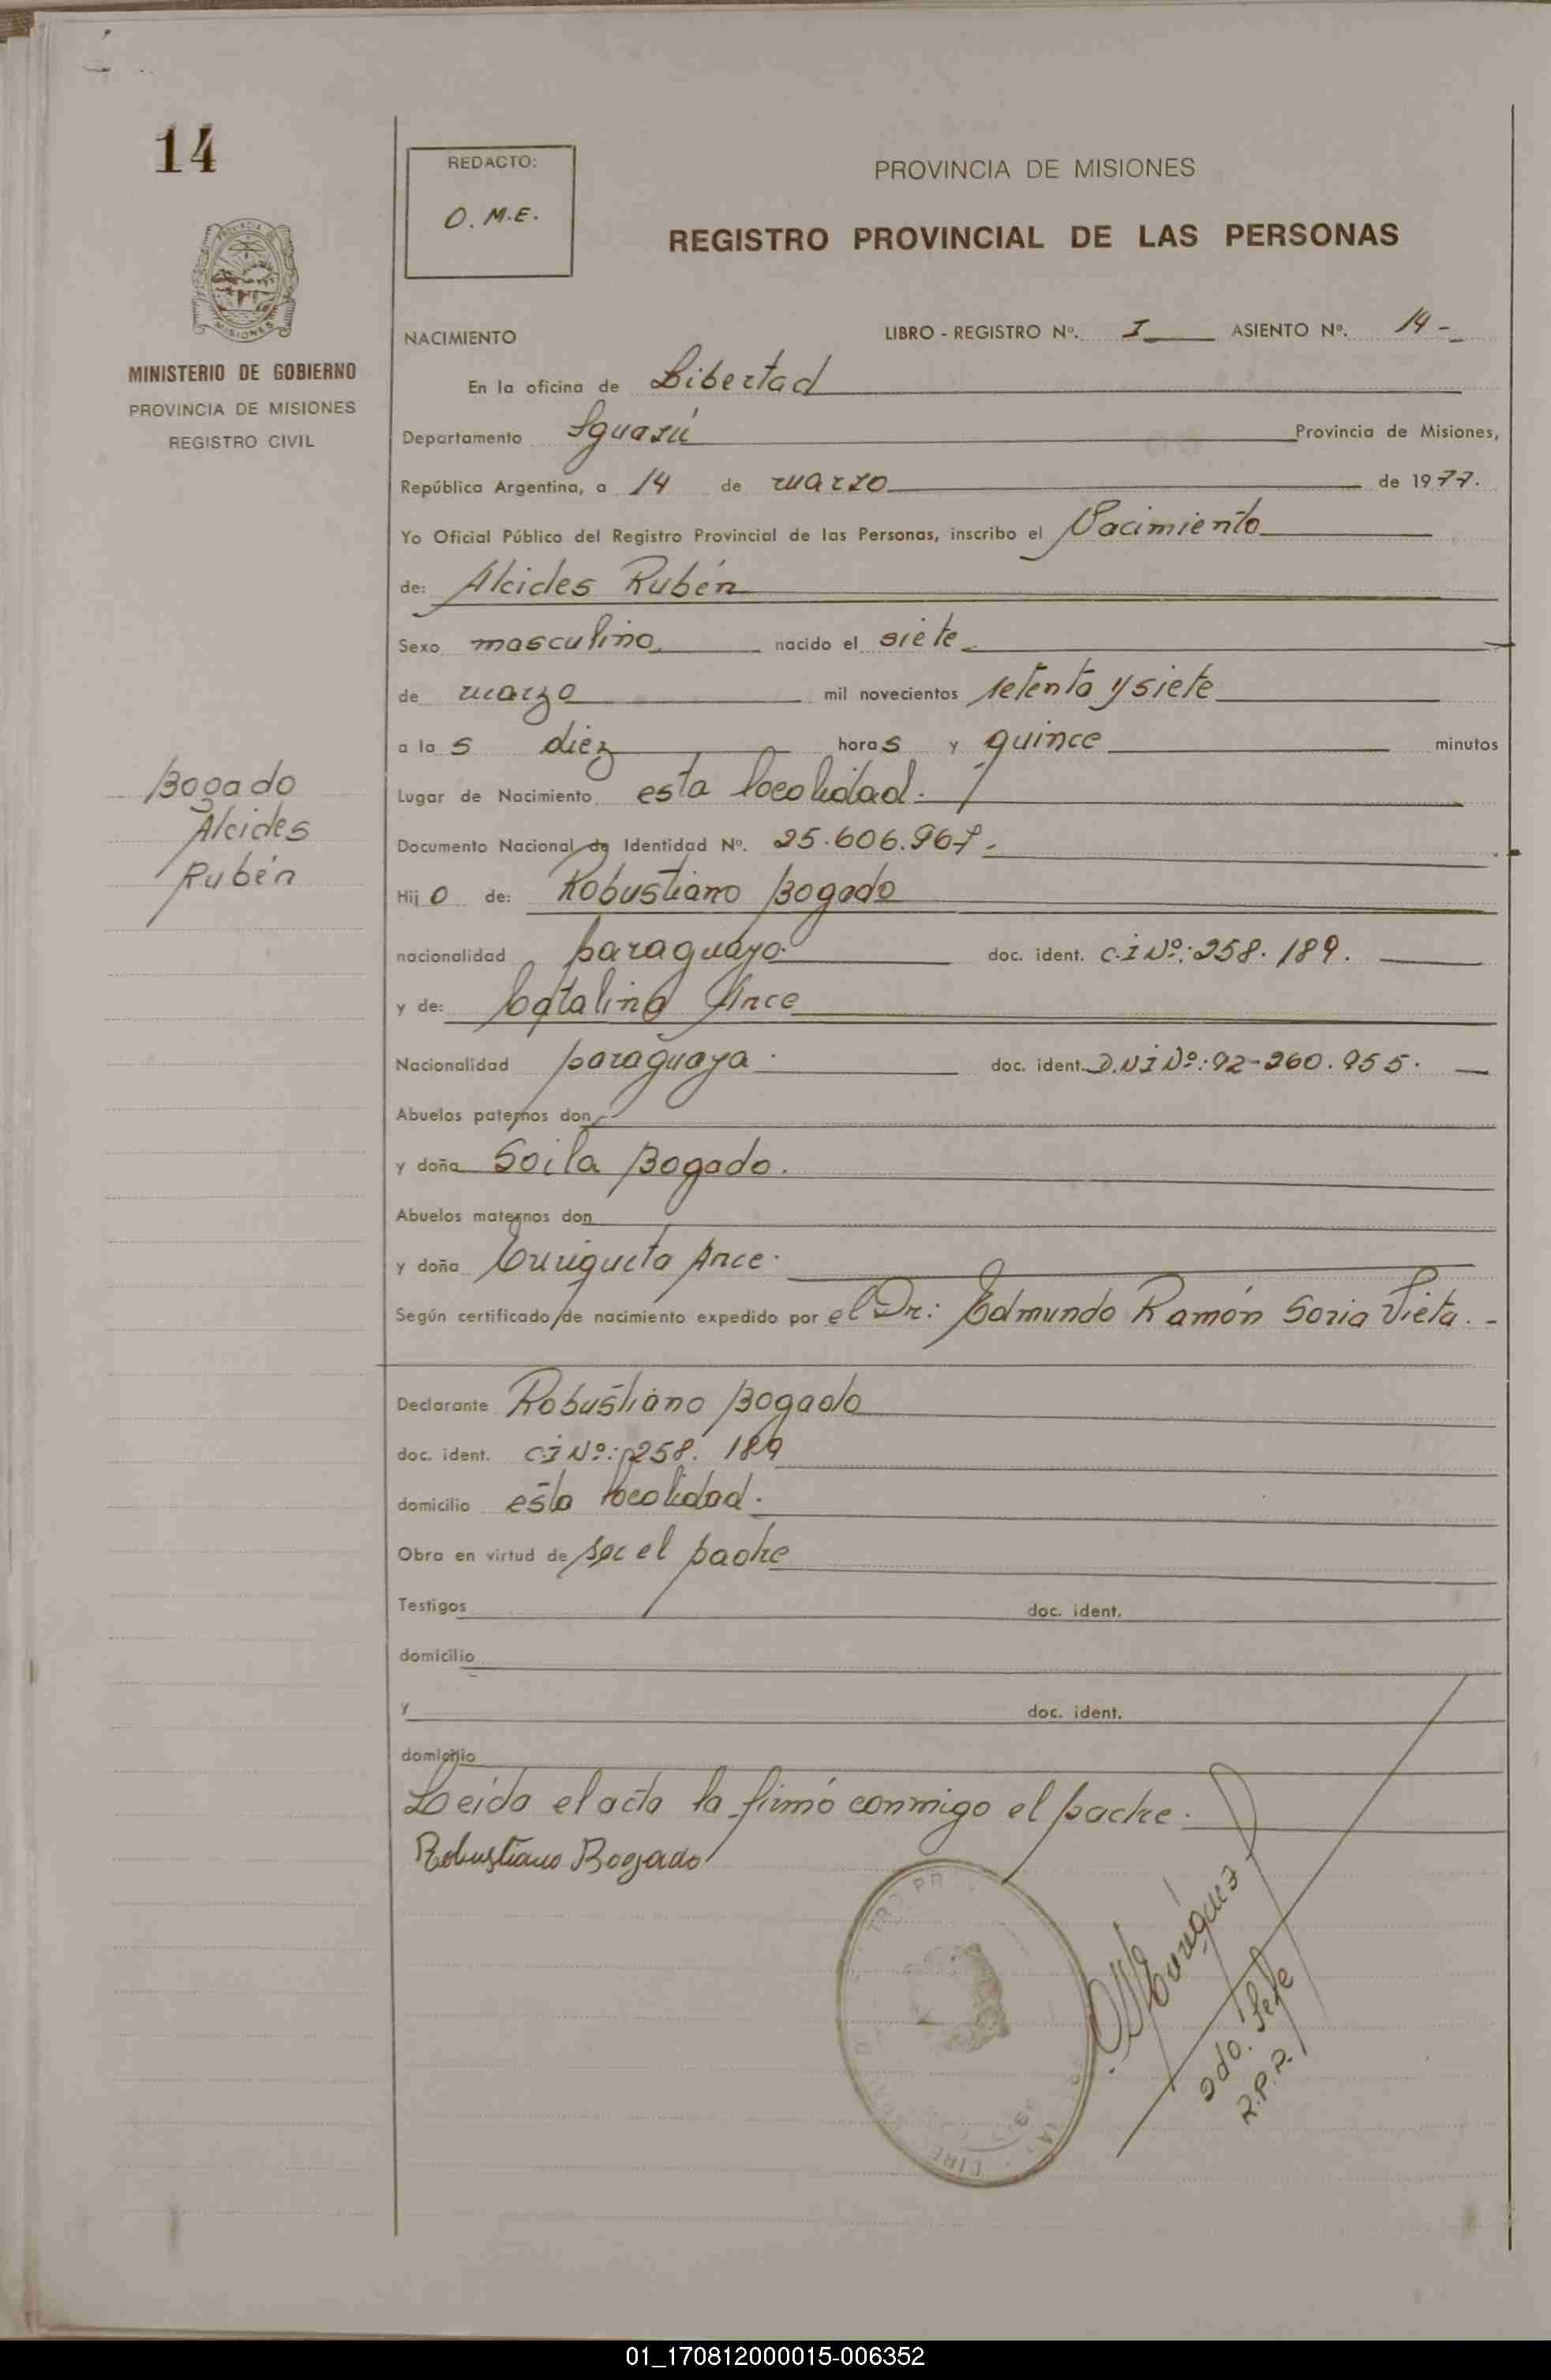 14
REDACTO:
O.M.E.
PROVINCIA DE MISIONES
REGISTRO PROVINCIAL DE LAS PERSONAS
MISIONES
MINISTERIO DE GOBIERNO
PROVINCIA DE MISIONES
REGISTRO CIVIL
NACIMIENTO LIBRO - REGISTRO Nº. I ASIENTO Nº. 14-
En la oficina de Libertad
Departamento Iguazú Provincia de Misiones,
República Argentina, a 14 de marzo de 1977.
Yo Oficial Público del Registro Provincial de las Personas, inscribo el Nacimiento
de: Alcides Rubén
Sexo masculino nacido el siete
de marzo mil novecientos setenta y siete
a las diez horas y quince minutos
Bogado
Alcides
Rubén
Lugar de Nacimiento esta localidad.
Documento Nacional de Identidad Nº. 25.606.967.
Hijo de: Robustiano Bogado
nacionalidad paraguayo. doc. ident. C.I Nº: 258.189.
y de: Catalina Arce
Nacionalidad paraguaya. doc. ident. D.N.I Nº: 92-260.955.
Abuelos paternos don
y doña Soila Bogado.
Abuelos maternos don
y doña Enriqueta Arce.
Según certificado de nacimiento expedido por el Dr: Edmundo Ramón Soria Vieta.-
Declarante Robustiano Bogado
doc. ident. C.I Nº: 258.189
domicilio esta localidad.
Obra en virtud de ser el padre
Testigos doc. ident.
domicilio
y doc. ident.
domicilio
Leída el acta la firmó conmigo el padre.
Robustiano Bogado
2do. Jefe
R.P.P.
01_170812000015-006352